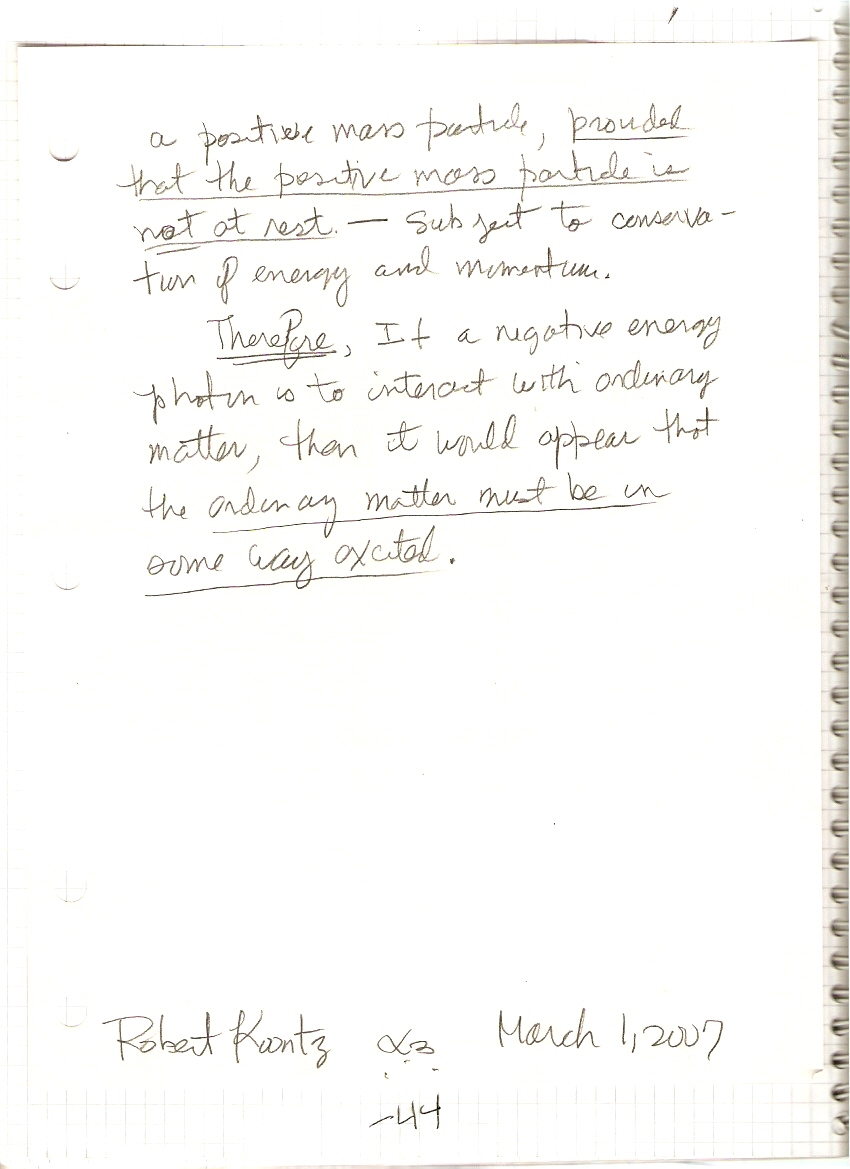 a positive mass particle, provided
that the positive mass particle is
not at rest. — Subject to conserva-
tion of energy and momentum.
Therefore, If a negative energy
photon is to interact with ordinary
matter, then it would appear that
the ordinary matter must be in
some way excited.
Robert Koontz α3 March 1, 2007
-44